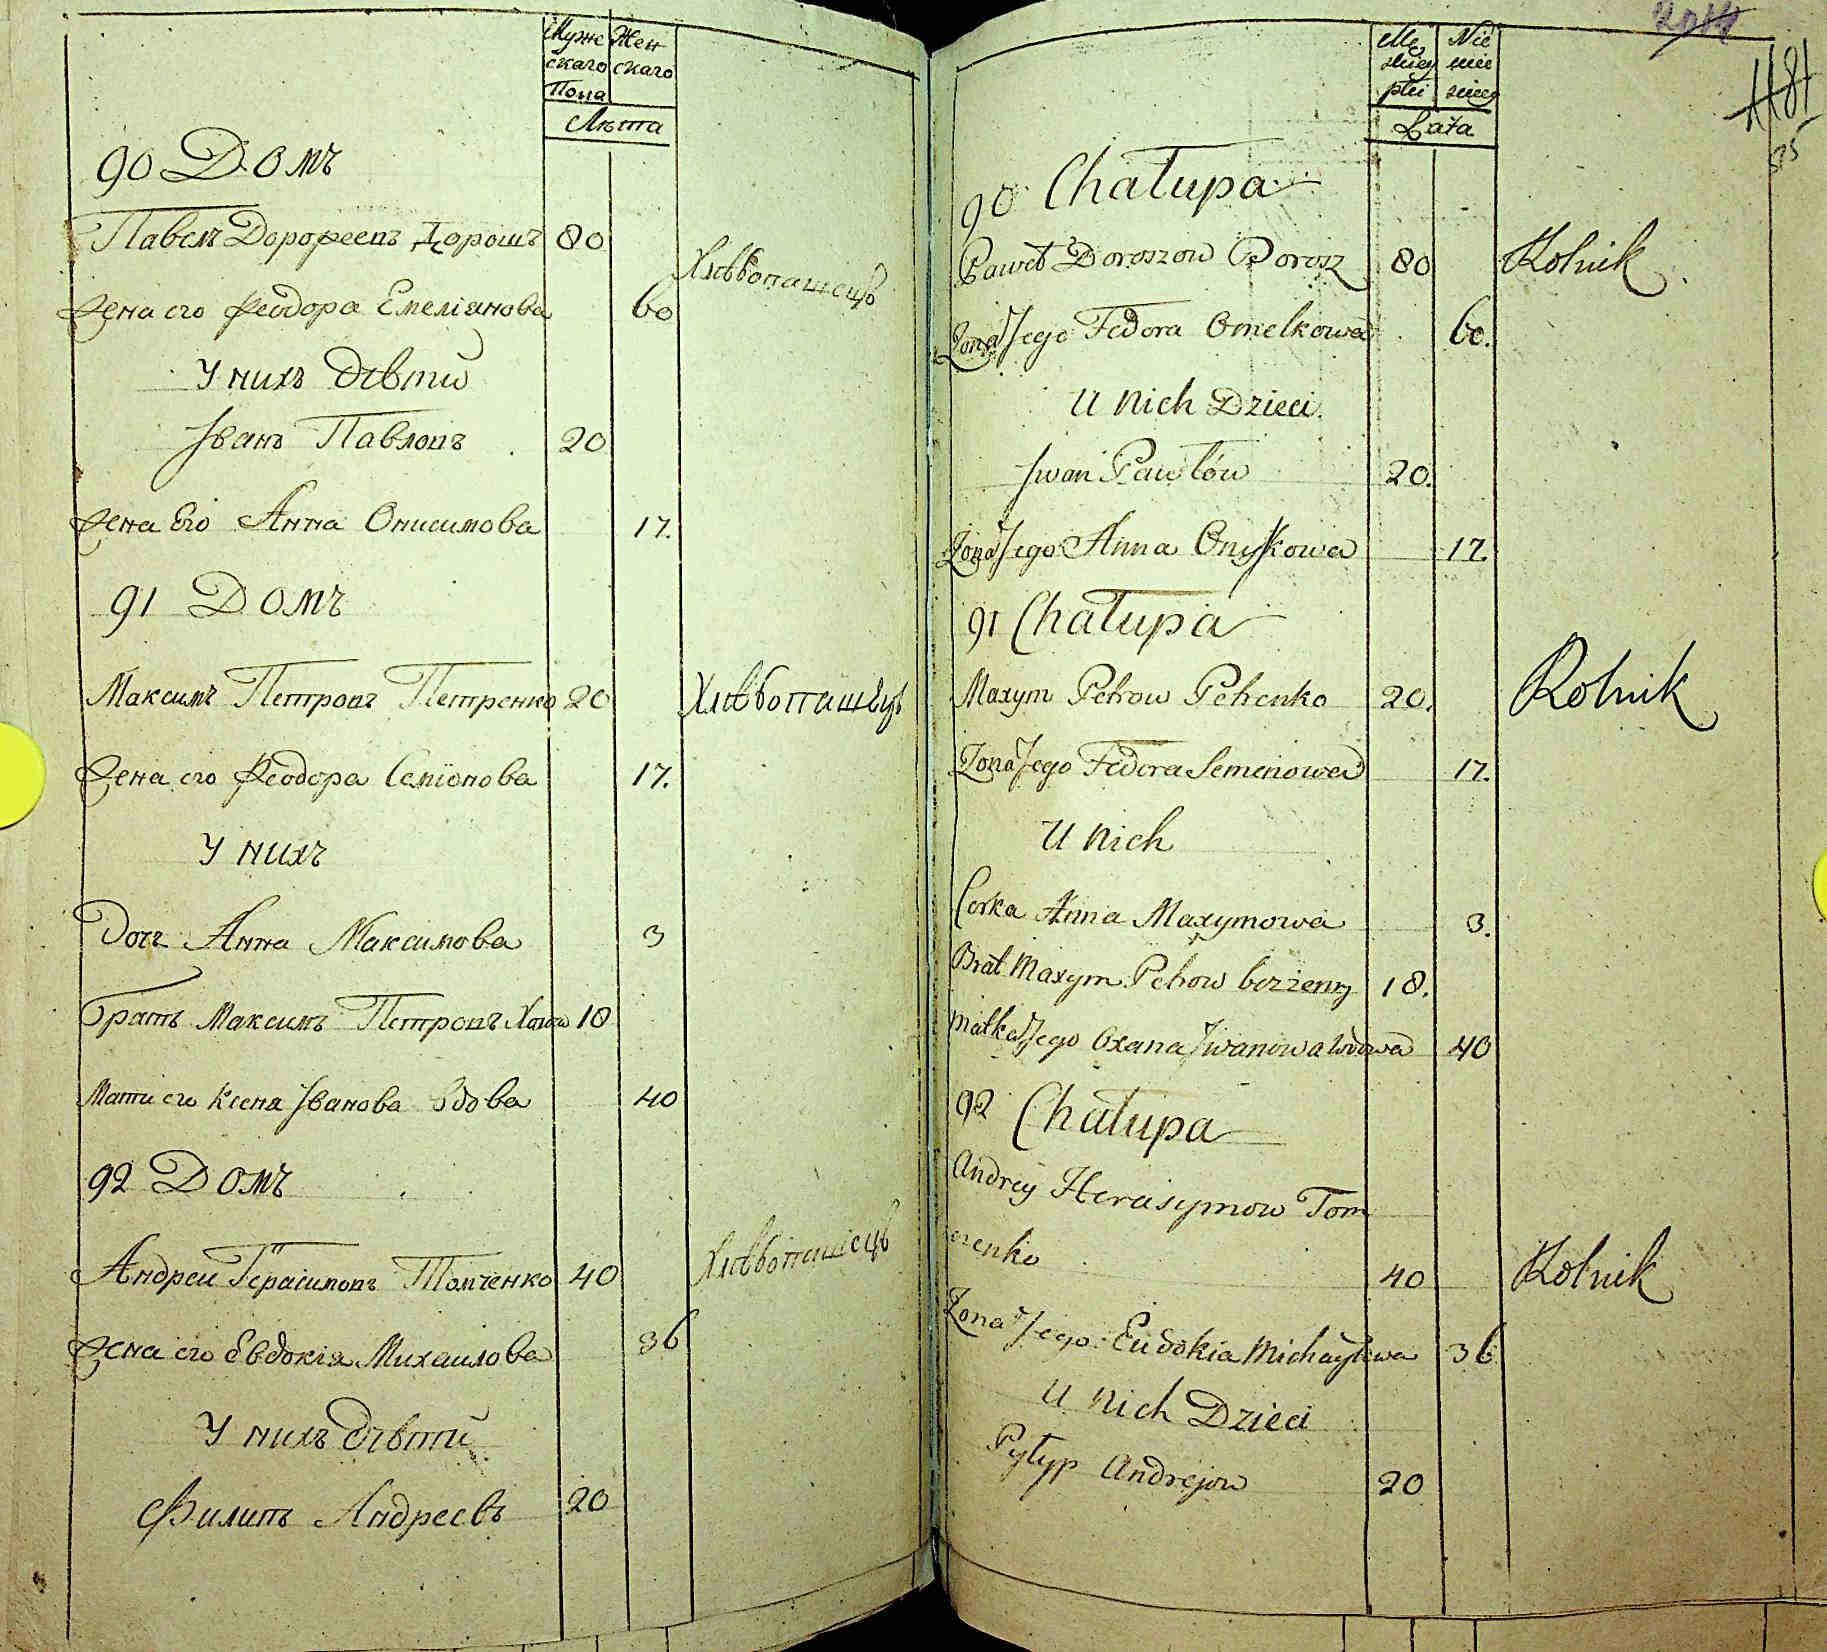 Муже Жен
скаго скаго
Пола
Лѣта
90 Домъ
Павелъ Дорофеевъ Дорошъ 80
Хлѣбопашецъ
Жена его Феодора Емеліанова 60
У нихъ дѣти
Іванъ Павловъ 20
Жена Его Анна Онисимова 17.
91 Домъ
Максимъ Петровъ Петренко 20 Хлѣбопашецъ
Жена его Феодора Семіонова 17.
У нихъ
Дочъ Анна Максимова 3
Братъ Максимъ Петровъ 18
Мати его Ксена Іванова вдова 40
92 Домъ
Андреи Герасимовъ Томченко 40 Хлѣбопашецъ
Жена его Евдокія Михаилова 36
У нихъ дѣти
Филипъ Андреевъ 20
Lata
90 Chałupa
Paweł Doroszow Dorosz 80 Rolnik
Zona Jego Fedora Omelkowa 60.
U Nich Dzieci
Jwan Pawłów 20.
Zona Jego Anna Onyśkowa 17.
91 Chałupa
Maxym Petrow Petrenko 20. Rolnik
Zona Jego Fedora Semenowa 17.
U Nich
Corka Anna Maxymowa 3.
Brat Maxym Petrow bezzenny 18.
Matka Jego Oxana Jwanowa Wdowa 40
92 Chałupa
Andrey Herasymow Tom
czenko 40 Rolnik
Zona Jego Eudokia Michayłowa 36
U Nich Dzieci
Pyłyp Andrejow 20